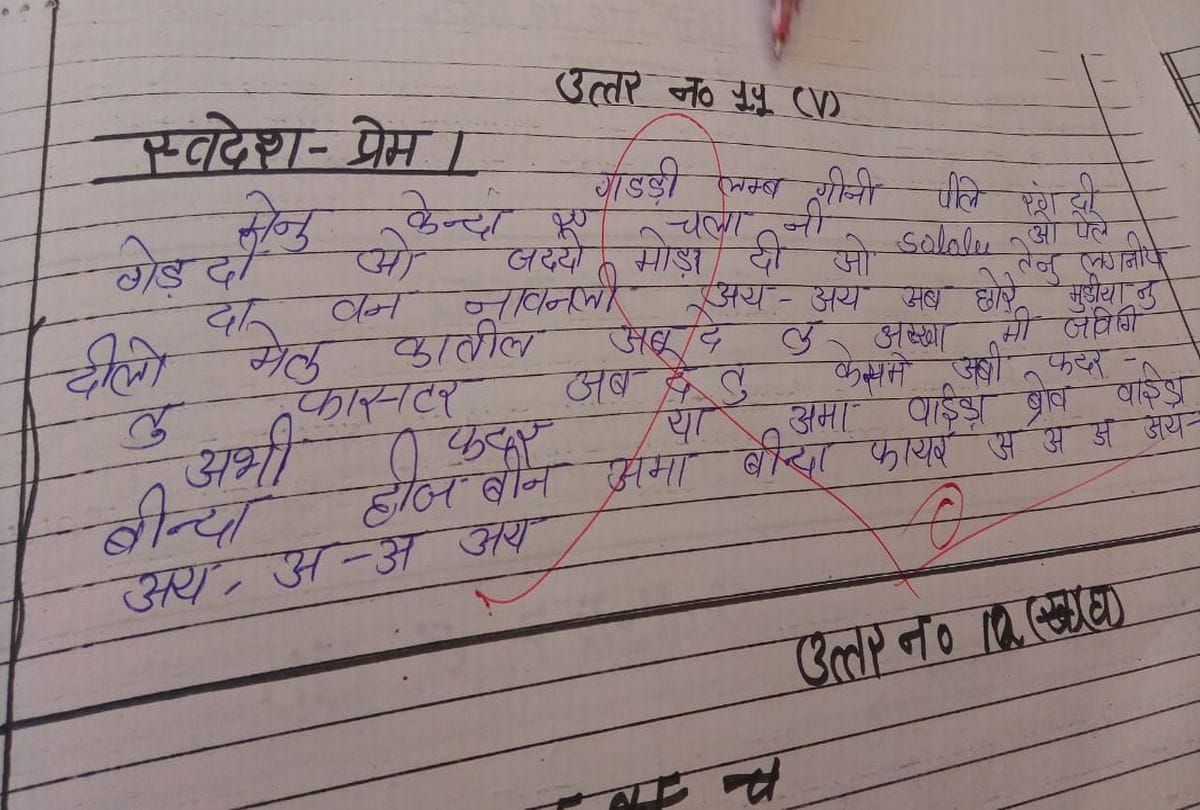 उत्तर न० 11 (V)
स्वदेश-प्रेम।
गडड़ी लम्ब गीनी पीले रंग दी
मेनु केन्दा चला नी sololu ओ पेले
गेड़ दो ओ जददो मोड़ा दी ओ तेनु लगनीय
दा वन नावनली अय-अय अब छोरे मुडीया नु
दीलो मेलु कातील अब दे तु अख्खा मी जविगि
तु फासटर अब दे तु केसमे अबी फदर-
अभी फदर या अमा वाईड़ा ब्रोव वाईड़ा
बीन्दा हीज बीन अमा बीन्दा फायर अ अ अ अय-
अय, अ-अ अय
0
उत्तर न० 12 (ख)(घ)